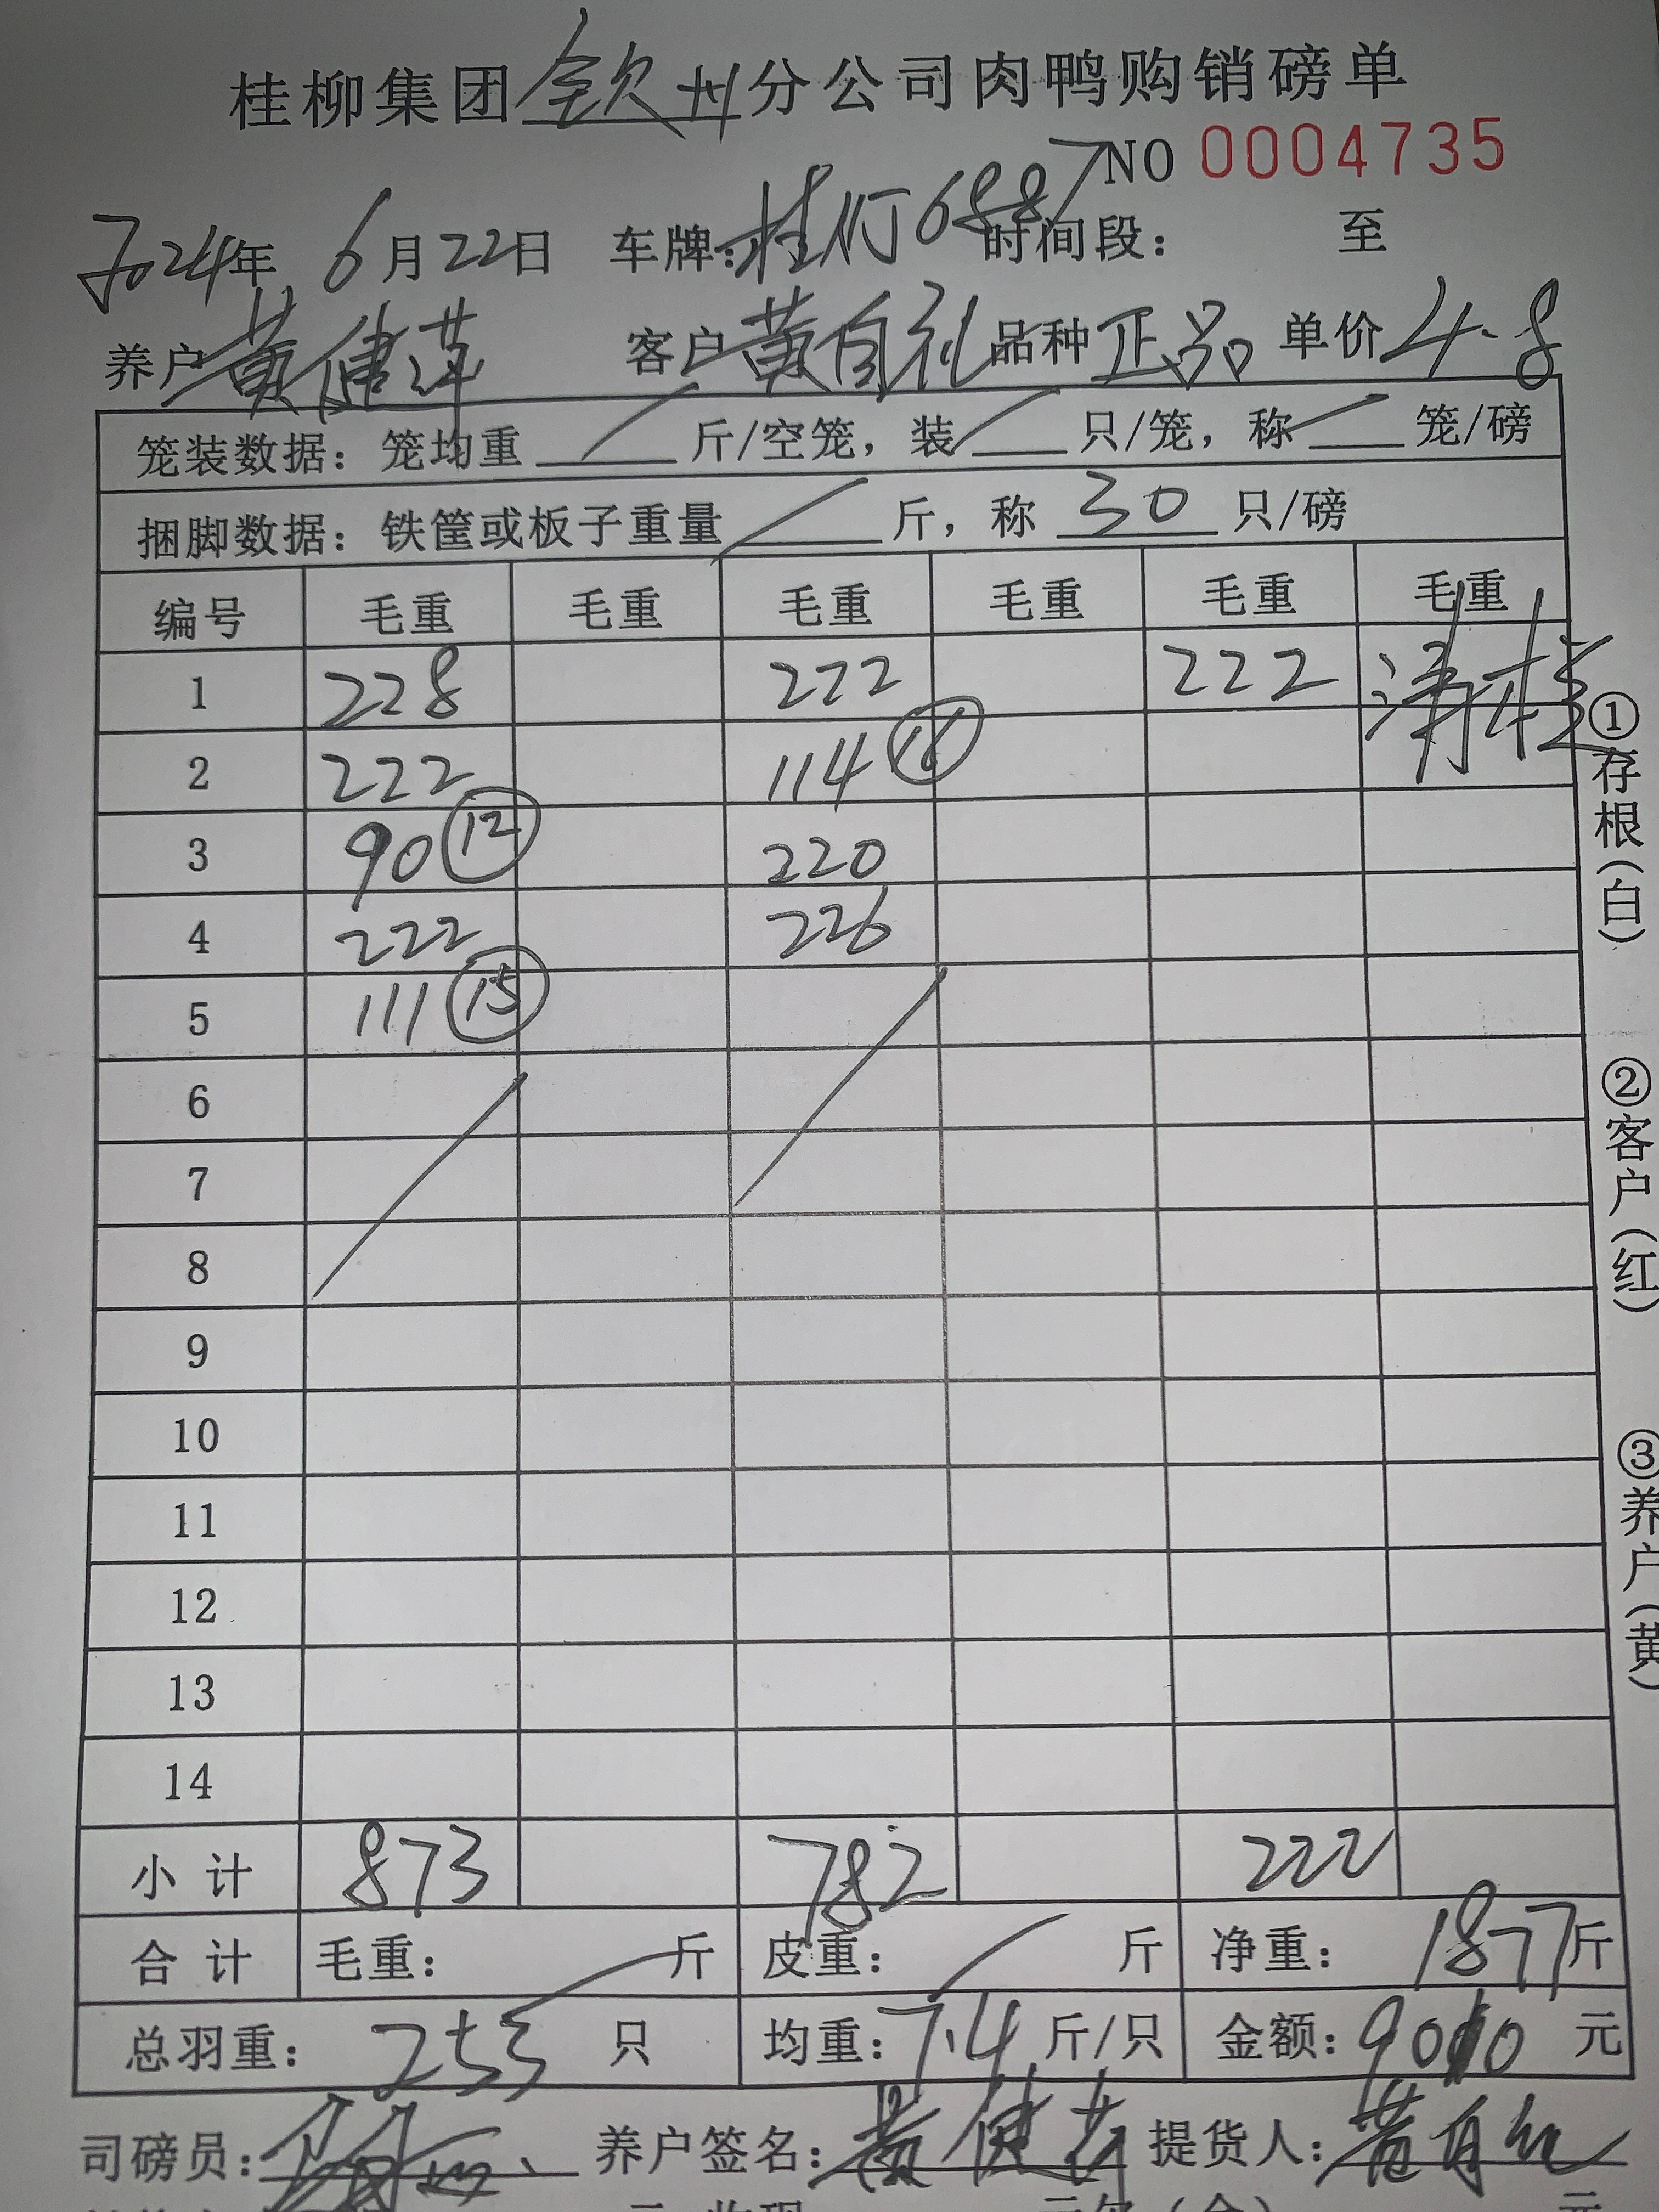 桂柳集团钦州分公司肉鸭购销磅单
NO 0004735
2024年 6月22日 车牌: 时间段: 至
养户 黄健萍 客户 黄自礼 品种 正品 单价 4.8
笼装数据:笼均重 斤/空笼,装 只/笼,称 笼/磅
捆脚数据:铁筐或板子重量 斤,称 30 只/磅
编号 毛重 毛重 毛重 毛重 毛重 毛重
1 228 222 222
2 222 114
3 90 ⑫ 220
4 222 226
5 111 ⑮
6
7
8
9
10
11
12
13
14
小计 873 782 222
合计 毛重: 斤 皮重: 斤 净重: 1877斤
总羽重: 253 只 均重:7.4斤/只 金额:9010 元
司磅员: 养户签名: 提货人:黄自礼
①存根(白)
②客户(红)
③养户(黄)